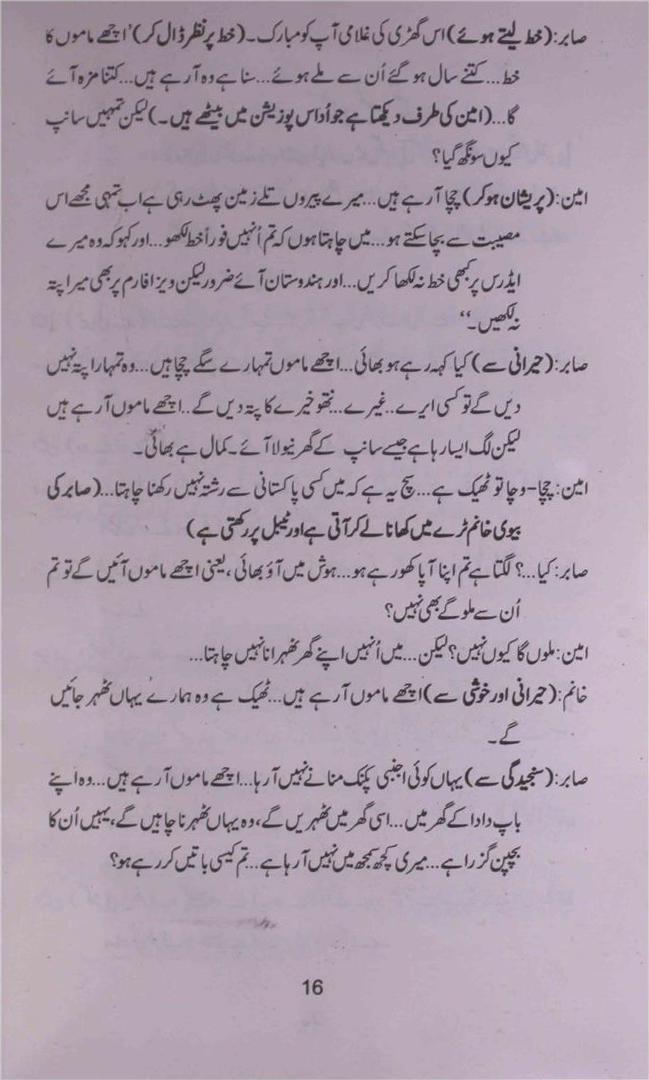 صابر: (خط لیتے ہوئے) اس گھڑی کی غلامی آپ کو مبارک۔ (خط پر نظر ڈال کر) 'اچھے ماموں کا
خط... کتنے سال ہو گئے اُن سے ملے ہوئے... سنا ہے وہ آ رہے ہیں... کتنا مزہ آئے
گا... (امین کی طرف دیکھتا ہے جو اُداس پوزیشن میں بیٹھے ہیں۔) لیکن تمہیں سانپ
کیوں سونگھ گیا؟
امین: (پریشان ہو کر) چچا آ رہے ہیں... میرے پیروں تلے زمین پھٹ رہی ہے اب تمہی مجھے اس
مصیبت سے بچا سکتے ہو... میں چاہتا ہوں کہ تم اُنہیں فوراً خط لکھو... اور کہو کہ وہ میرے
ایڈرس پر کبھی خط نہ لکھا کریں... اور ہندوستان آئے ضرور لیکن ویزا فارم پر بھی میرا پتہ
نہ لکھیں۔‘‘
صابر: (حیرانی سے) کیا کہہ رہے ہو بھائی... اچھے ماموں تمہارے سگے چچا ہیں... وہ تمہارا پتہ نہیں
دیں گے تو کسی ایرے.. غیرے... نتھو خیرے کا پتہ دیں گے.. اچھے ماموں آ رہے ہیں
لیکن لگ ایسا رہا ہے جیسے سانپ کے گھر نیولا آئے۔ کمال ہے بھائی۔
امین: چچا-وچا تو ٹھیک ہے... سچ یہ ہے کہ میں کسی پاکستانی سے رشتہ نہیں رکھنا چاہتا... (صابر کی
بیوی خانم ٹرے میں کھانا لے کر آتی ہے اور ٹیبل پر رکھتی ہے)
صابر: کیا...؟ لگتا ہے تم اپنا آپا کھو رہے ہو... ہوش میں آؤ بھائی، یعنی اچھے ماموں آئیں گے تو تم
اُن سے ملو گے بھی نہیں؟
امین: ملوں گا کیوں نہیں؟ لیکن... میں اُنہیں اپنے گھر ٹھہرانا نہیں چاہتا...
خانم: (حیرانی اور خوشی سے) اچھے ماموں آ رہے ہیں... ٹھیک ہے وہ ہمارے یہاں ٹھہر جائیں
گے۔
صابر: (سنجیدگی سے) یہاں کوئی اجنبی پکنک منانے نہیں آ رہا... اچھے ماموں آ رہے ہیں... وہ اپنے
باپ دادا کے گھر میں... اسی گھر میں ٹھہریں گے، وہ یہاں ٹھہرنا چاہیں گے، یہیں اُن کا
بچپن گزرا ہے... میری کچھ سمجھ میں نہیں آ رہا ہے... تم کیسی باتیں کر رہے ہو؟
16